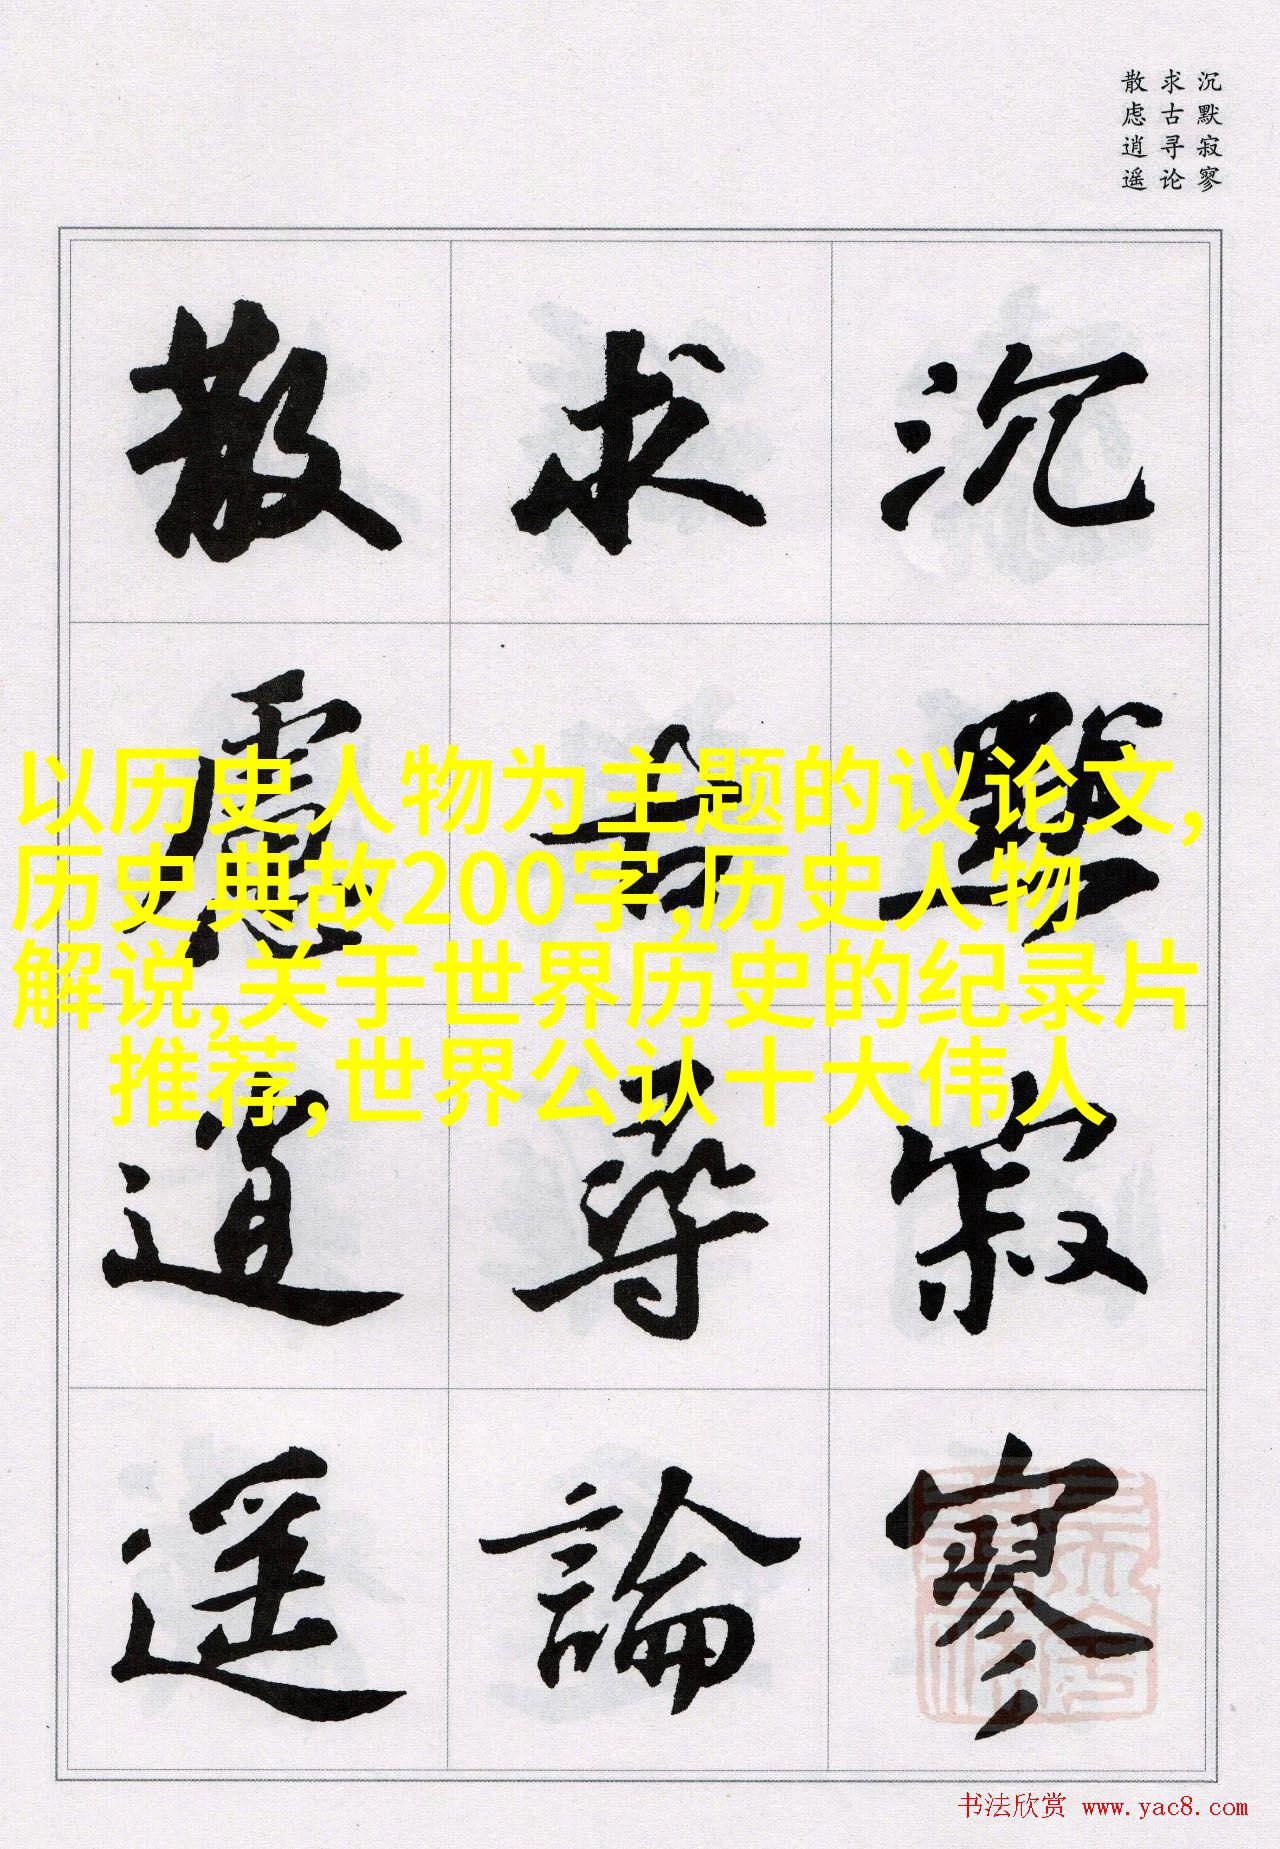 沉默寂寥
求古寻论
散虑逍遥
沉默寂寥
求古尋論
散慮逍遥
以历史人物为主题的议论文,
历史典故200字,历史人物
解说,关于世界历史的纪录片
推荐,世界公认十大伟人
书法欣赏 www.yac8.com